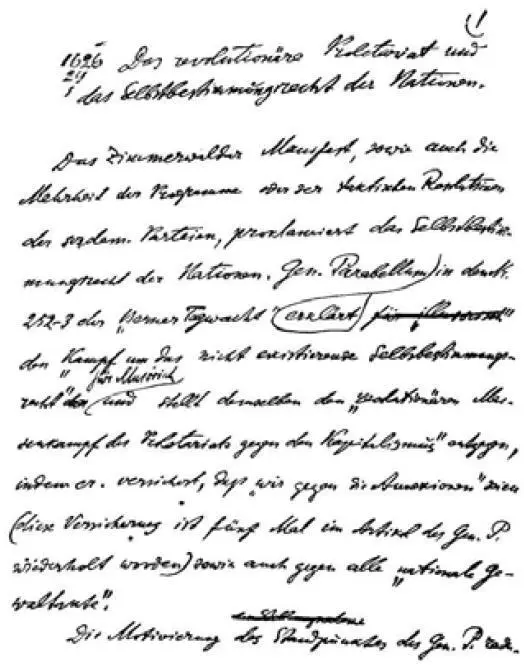 (1
1626 Das revolutionäre Proletariat und
24
1 das Selbstbestimmungsrecht der Nationen.
Das Zimmerwalder Manifest, sowie auch die
Mehrheit der Programme oder der taktischen Resolutionen
der sozdem. Parteien, proklamiert das Selbstbestim-
mungsrecht der Nationen. Gen. Parabellum in den Nr.
252-3 der "Berner Tagwacht" erklärt für "illusorisch"
den "Kampf um das nicht existierende Selbstbestimmungs-
für illusorisch
recht" und stellt demselben den "revolutionären Mas-
senkampf des Proletariats gegen den Kapitalismus" entgegen,
indem er versichert, daß "wir gegen die Annexionen" seien
(diese Versicherung ist fünf Mal im Artikel des Gen. P.
wiederholt worden) sowie auch gegen alle "nationale Ge-
waltakte".
Die Motivierung des Standpunktes des Gen. P. redu-